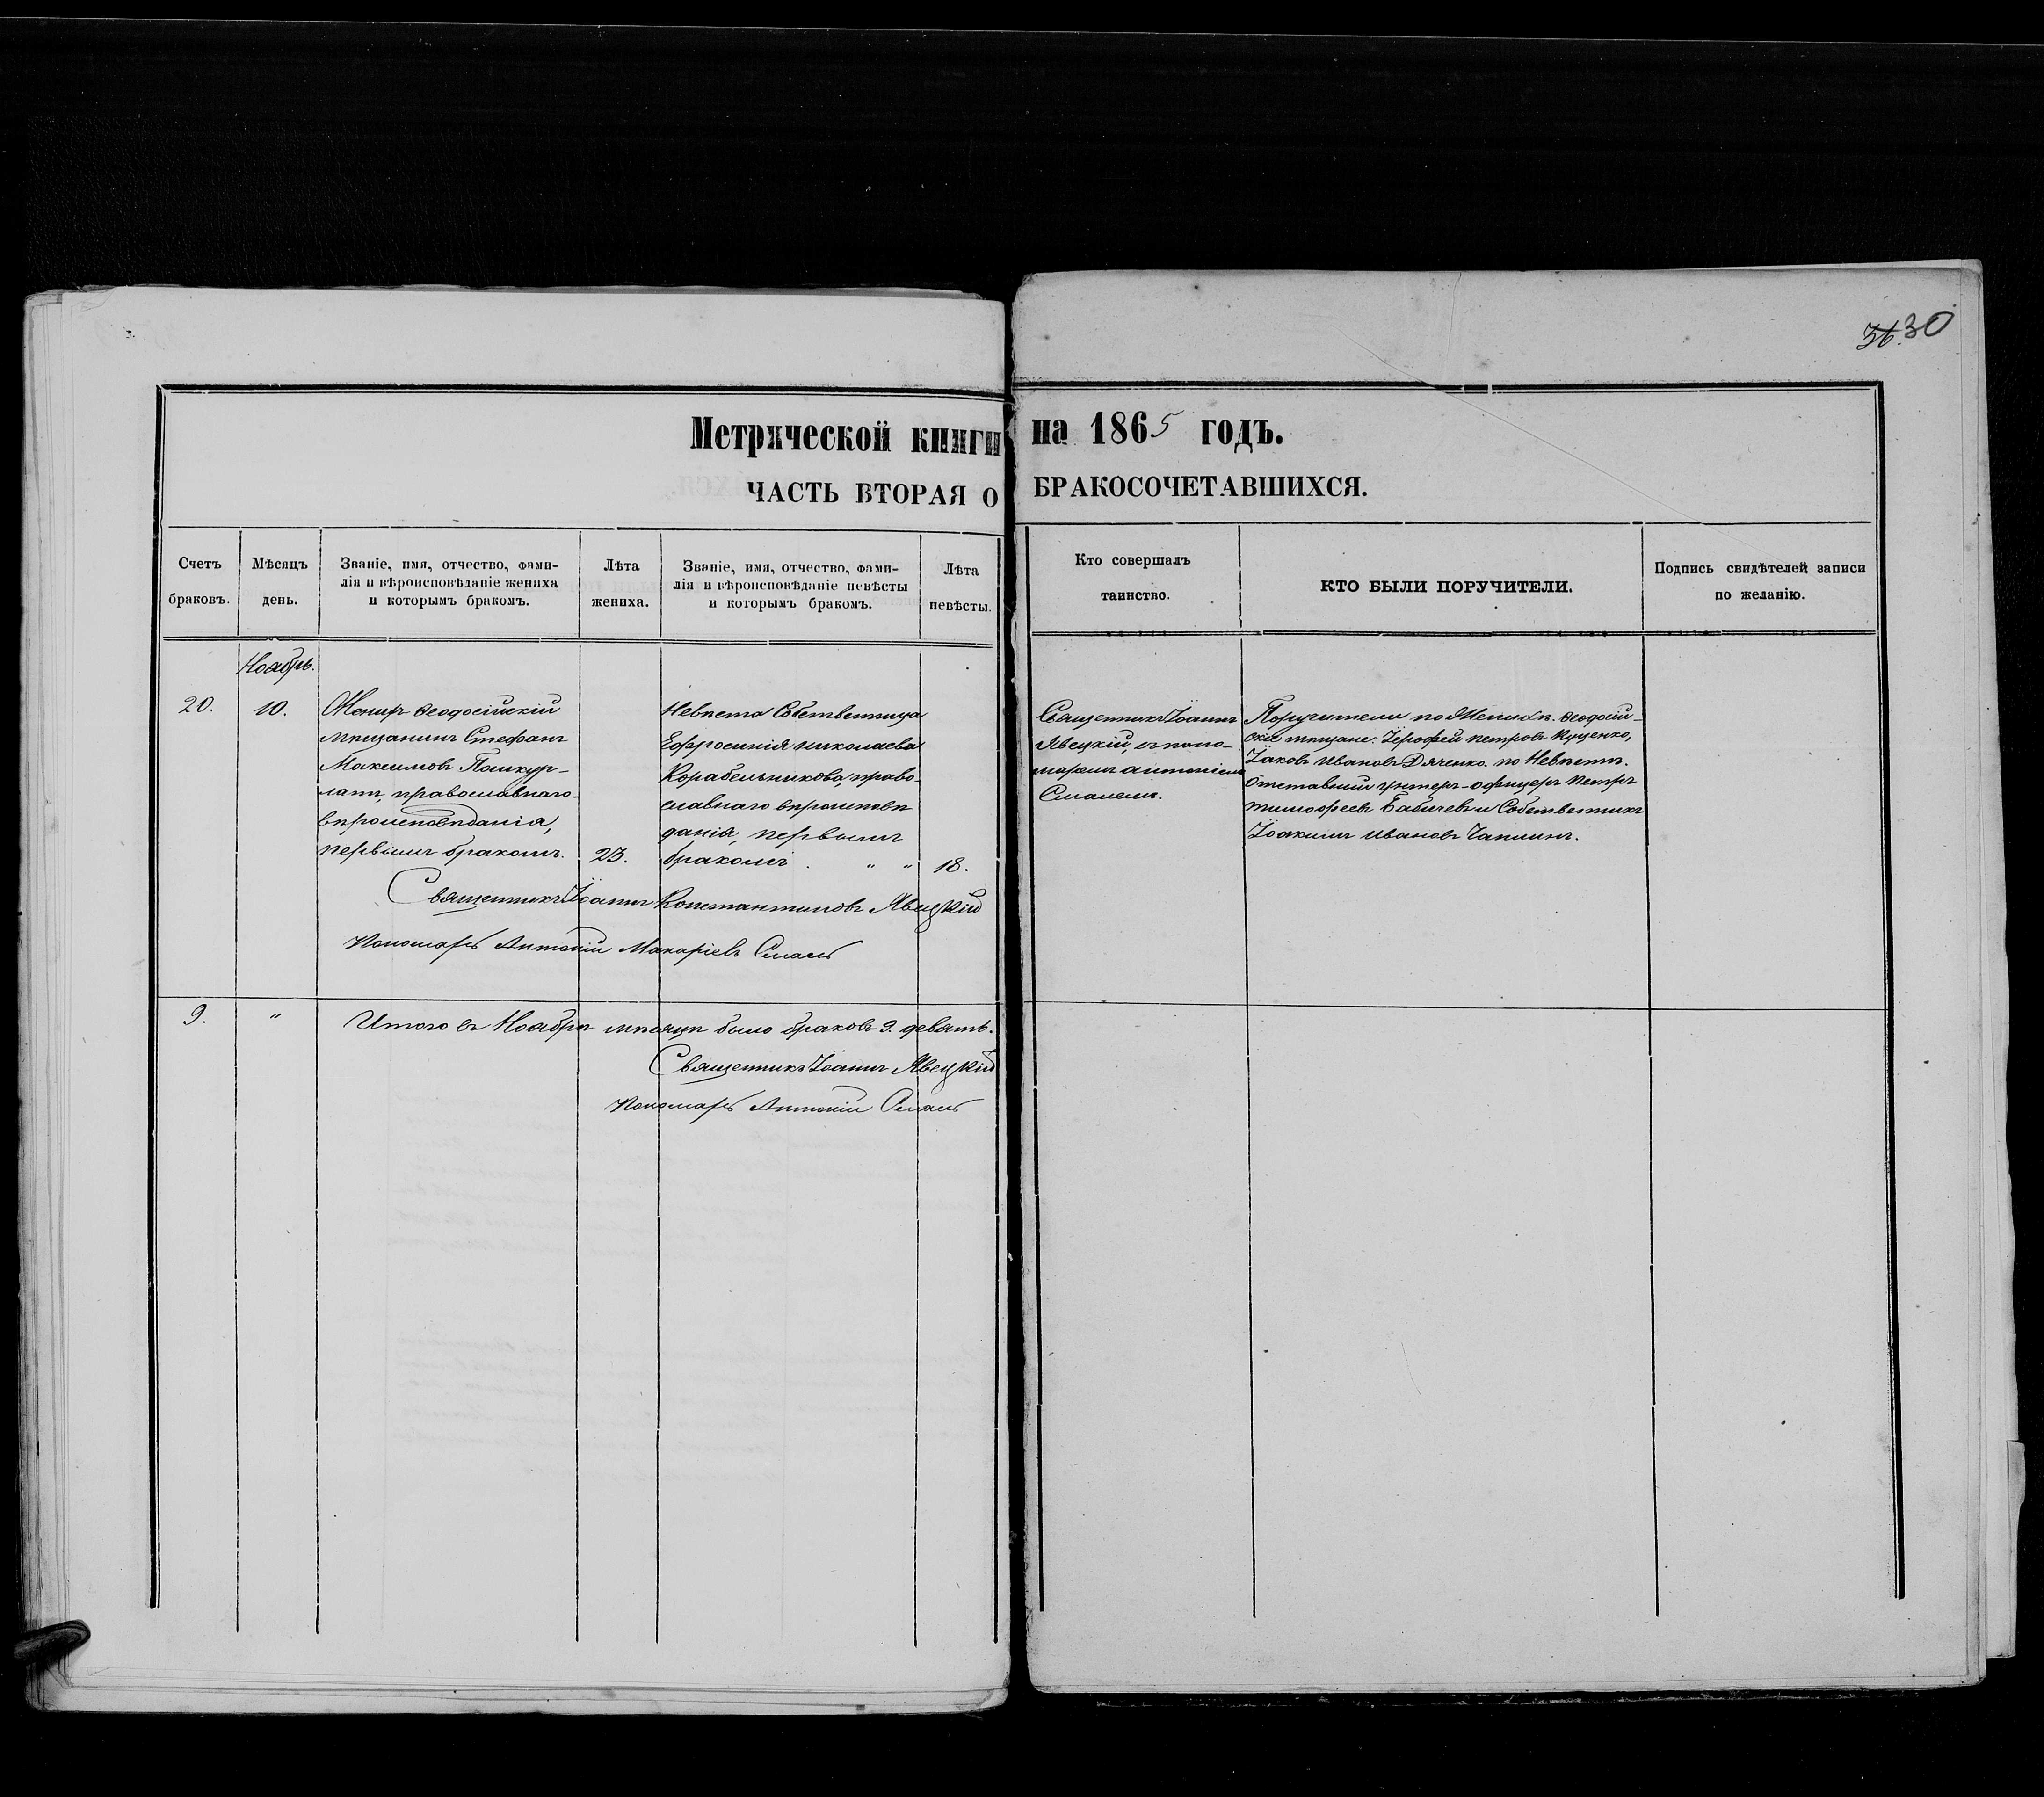 36. 30
Метрической книги на 1865 годъ.
ЧАСТЬ ВТОРАЯ О БРАКОСОЧЕТАВШИХСЯ.
Счетъ
браковъ.
Мѣсяцъ
день.
Званіе, имя, отчество, фами-
лія и вѣроисповѣданіе жениха
и которымъ бракомъ.
Лѣта
жениха.
Званіе, имя, отчество, фами-
лія и вѣроисповѣданіе невѣсты
и которымъ бракомъ.
Лѣта
невѣсты.
Кто совершалъ
таинство.
КТО БЫЛИ ПОРУЧИТЕЛИ.
Подпись свидѣтелей записи
по желанію.
Ноябрь.
20.
10.
Женихъ Ѳеодосійскій
мѣщанинъ Стефанъ
Максимовъ Пашкур-
латъ, православнаго
вѣроисповѣданія,
первымъ бракомъ.
23.
Невѣста Собственница
Ефросинія Николаева
Корабельникова, право-
славнаго вѣроисповѣ
данія, первымъ
бракомъ. " "
18.
Священникъ Іоаннъ
Явецкій, съ поно-
маремъ Антоніемъ
Смалемъ.
Поручители по Женихѣ. Ѳеодосій-
скіе мѣщане: Іерофей Петровъ Куценко,
Іаковъ Ивановъ Дяченко. по Невѣстѣ.
Отставный унтеръ-офицеръ Петръ
Тимофеевъ Бабичевъ и Собственникъ
Іоакимъ Ивановъ Чаплинъ.
Священникъ Іоаннъ Константиновъ Явецкій
Пономарь Антоній Макаріевъ Смаль
9.
"
Итого въ Ноябрѣ мѣсяцѣ было браковъ 9. девять.
Священникъ Іоаннъ Явецкій
Пономарь Антоній Смаль